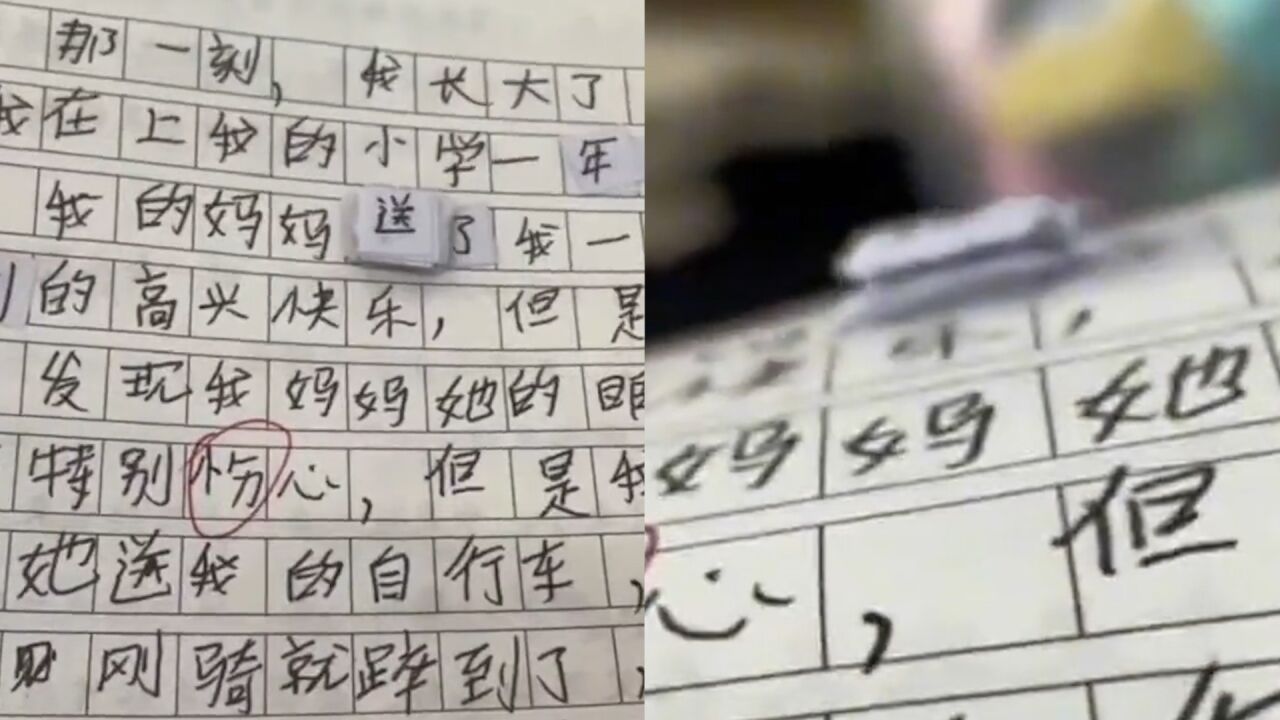 那一刻,我长大了
我在上我的小学一年
我的妈妈送了我一
的高兴快乐,但是
发现我妈妈她的眼
特别伤心,但是我
她送我的自行车,
刚骑就摔到了,
妈妈她
心,但